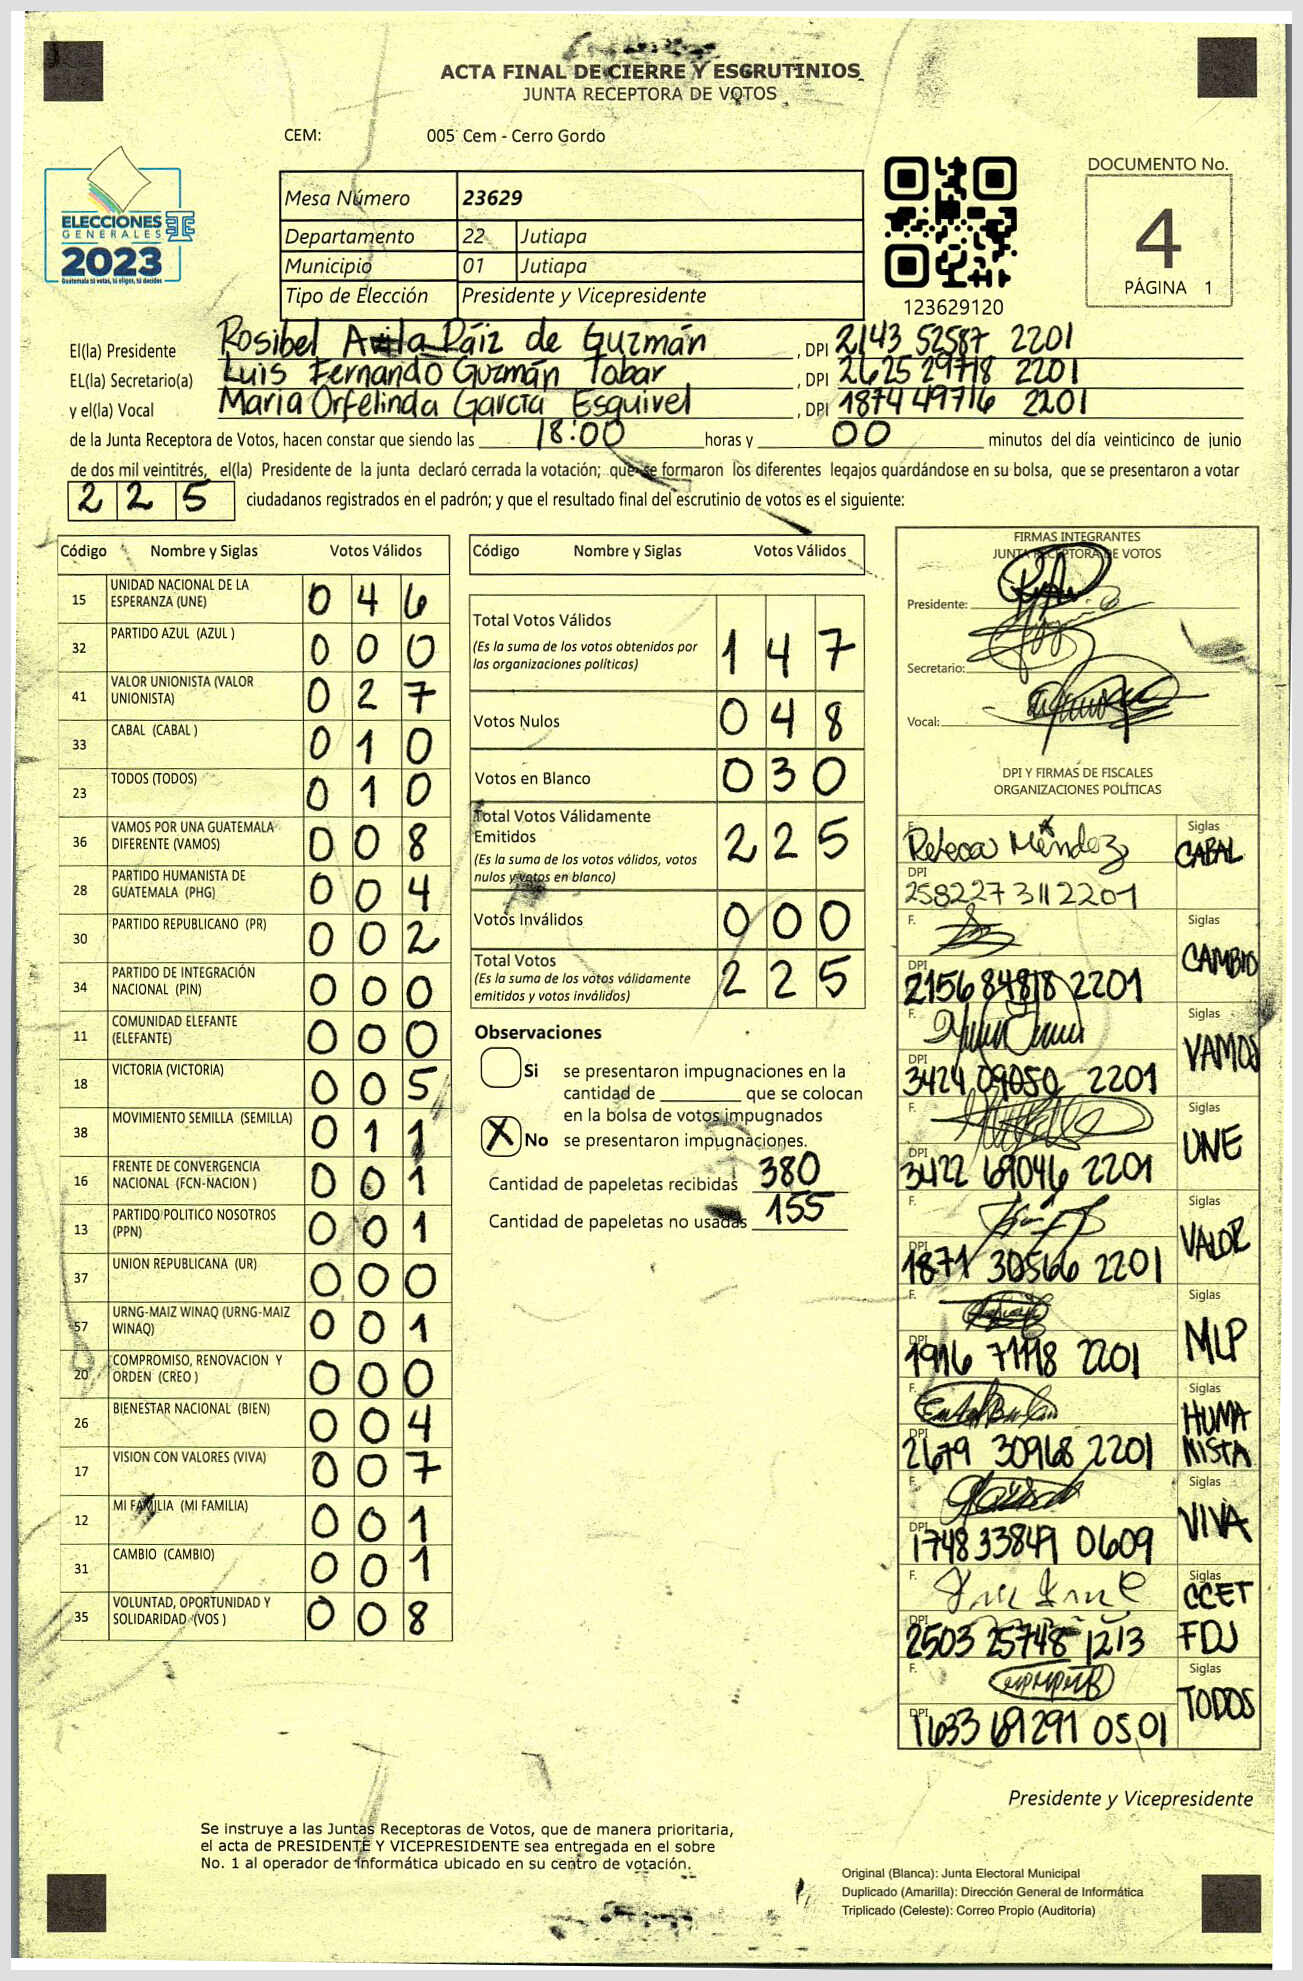 ACTA FINAL DE CIERRE Y ESCRUTINIOS
JUNTA RECEPTORA DE VOTOS
CEM: 005 Cem - Cerro Gordo
ELECCIONES
GENERALES
2023
Guatemala tú votas, tú eliges, tú decides
Mesa Número 23629
Departamento 22 Jutiapa
Municipio 01 Jutiapa
Tipo de Elección Presidente y Vicepresidente
123629120
DOCUMENTO No.
4
PÁGINA 1
El(la) Presidente Rosibel Avila Páiz de Guzmán , DPI 2143 52587 2201
EL(la) Secretario(a) Luis Fernando Guzmán Tobar , DPI 2625 29718 2201
y el(la) Vocal Maria Orfelinda García Esquivel , DPI 1874 49716 2201
de la Junta Receptora de Votos, hacen constar que siendo las 18:00 horas y 00 minutos del día veinticinco de junio
de dos mil veintitrés, el(la) Presidente de la junta declaró cerrada la votación; que se formaron los diferentes legajos guardándose en su bolsa, que se presentaron a votar
225 ciudadanos registrados en el padrón; y que el resultado final del escrutinio de votos es el siguiente:
Código Nombre y Siglas Votos Válidos
15 UNIDAD NACIONAL DE LA ESPERANZA (UNE) 046
32 PARTIDO AZUL (AZUL ) 000
41 VALOR UNIONISTA (VALOR UNIONISTA) 027
33 CABAL (CABAL ) 010
23 TODOS (TODOS) 010
36 VAMOS POR UNA GUATEMALA DIFERENTE (VAMOS) 008
28 PARTIDO HUMANISTA DE GUATEMALA (PHG) 004
30 PARTIDO REPUBLICANO (PR) 002
34 PARTIDO DE INTEGRACIÓN NACIONAL (PIN) 000
11 COMUNIDAD ELEFANTE (ELEFANTE) 000
18 VICTORIA (VICTORIA) 005
38 MOVIMIENTO SEMILLA (SEMILLA) 011
16 FRENTE DE CONVERGENCIA NACIONAL (FCN-NACION ) 001
13 PARTIDO POLITICO NOSOTROS (PPN) 001
37 UNION REPUBLICANA (UR) 000
57 URNG-MAIZ WINAQ (URNG-MAIZ WINAQ) 001
20 COMPROMISO, RENOVACION Y ORDEN (CREO ) 000
26 BIENESTAR NACIONAL (BIEN) 004
17 VISION CON VALORES (VIVA) 007
12 MI FAMILIA (MI FAMILIA) 001
31 CAMBIO (CAMBIO) 001
35 VOLUNTAD, OPORTUNIDAD Y SOLIDARIDAD (VOS ) 008
Código Nombre y Siglas Votos Válidos
Total Votos Válidos 147
(Es la suma de los votos obtenidos por
las organizaciones políticas)
Votos Nulos 048
Votos en Blanco 030
Total Votos Válidamente
Emitidos 225
(Es la suma de los votos válidos, votos
nulos y votos en blanco)
Votos Inválidos 000
Total Votos 225
(Es la suma de los votos válidamente
emitidos y votos inválidos)
Observaciones
Si se presentaron impugnaciones en la
cantidad de ________ que se colocan
en la bolsa de votos impugnados
X No se presentaron impugnaciones.
Cantidad de papeletas recibidas 380
Cantidad de papeletas no usadas 155
FIRMAS INTEGRANTES
JUNTA RECEPTORA DE VOTOS
Presidente:
Secretario:
Vocal:
DPI Y FIRMAS DE FISCALES
ORGANIZACIONES POLÍTICAS
F. Rebeca Méndez Siglas CABAL
DPI 258227311 2201
F. Siglas CAMBIO
DPI 2156 84818 2201
F. Siglas VAMOS
DPI 3424 09050 2201
F. Siglas UNE
DPI 3422 69046 2201
F. Siglas VALOR
DPI 1871 30566 2201
F. Siglas MLP
DPI 1916 71118 2201
F. Siglas HUMANISTA
DPI 2679 30968 2201
F. Siglas VIVA
DPI 1748 33849 0609
F. Siglas CCET FDJ
DPI 2503 25748 1213
F. Siglas TODOS
DPI 1633 69291 0501
Presidente y Vicepresidente
Se instruye a las Juntas Receptoras de Votos, que de manera prioritaria,
el acta de PRESIDENTE Y VICEPRESIDENTE sea entregada en el sobre
No. 1 al operador de informática ubicado en su centro de votación.
Original (Blanca): Junta Electoral Municipal
Duplicado (Amarilla): Dirección General de Informática
Triplicado (Celeste): Correo Propio (Auditoría)